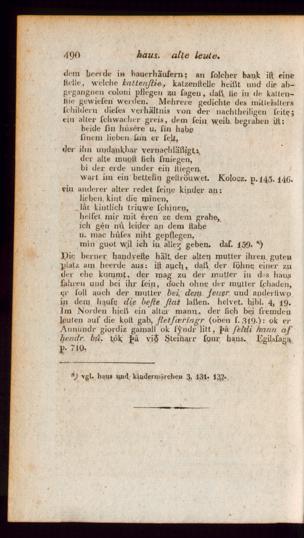 490 haus. alte leute.
dem heerde in bauerhäusern; an solcher bank ist eine
stelle, welche kattenstie, katzenstelle heißt und die ab-
gegangnen coloni pflegen zu sagen, daß sie in de katten-
stie gewiesen werden. Mehrere gedichte des mittelalters
schildern dieses verhältnis von der nachtheiligen seite;
ein alter schwacher greis, dem sein weib begraben ist:
beide sin húsêre u. sin habe
sinem lieben sun er selt,
der ihn undankbar vernachläßigt;
der alte muost sich smiegen,
bi der erde under ein stiegen
wart im ein bettelin gestrouwet. Kolocz. p. 145. 146.
ein anderer alter redet seine kinder an:
lieben kint die minen,
lât kintlich triuwe schinen,
helfet mir mit êren ze dem grabe,
ich gên nû leider an dem stabe
u. mac hûses niht gepflegen,
min guot wil ich iu alleȥ geben. das. 159. *)
Die berner handveste hält der alten mutter ihren guten
platz am heerde aus: ist auch, daß der söhne einer zu
der ehe kommt, der mag zu der mutter in das haus
fahren und bei ihr sein, doch ohne der mutter schaden,
er soll auch der mutter bei dem feuer und anderswo
in dem hause die beste stat lassen. helvet. bibl. 4, 19.
Im Norden hieß ein alter mann, der sich bei fremden
leuten auf die kost gab, fletfœringr (oben f. 319.): ok er
Annundr giordiz gamall ok sýndr litt, þá seldi hann af
hendr. bú. tók þá við Steinarr sonr hans. Egilssaga
p. 710.
*) vgl. haus und kindermärchen 3, 131. 132.